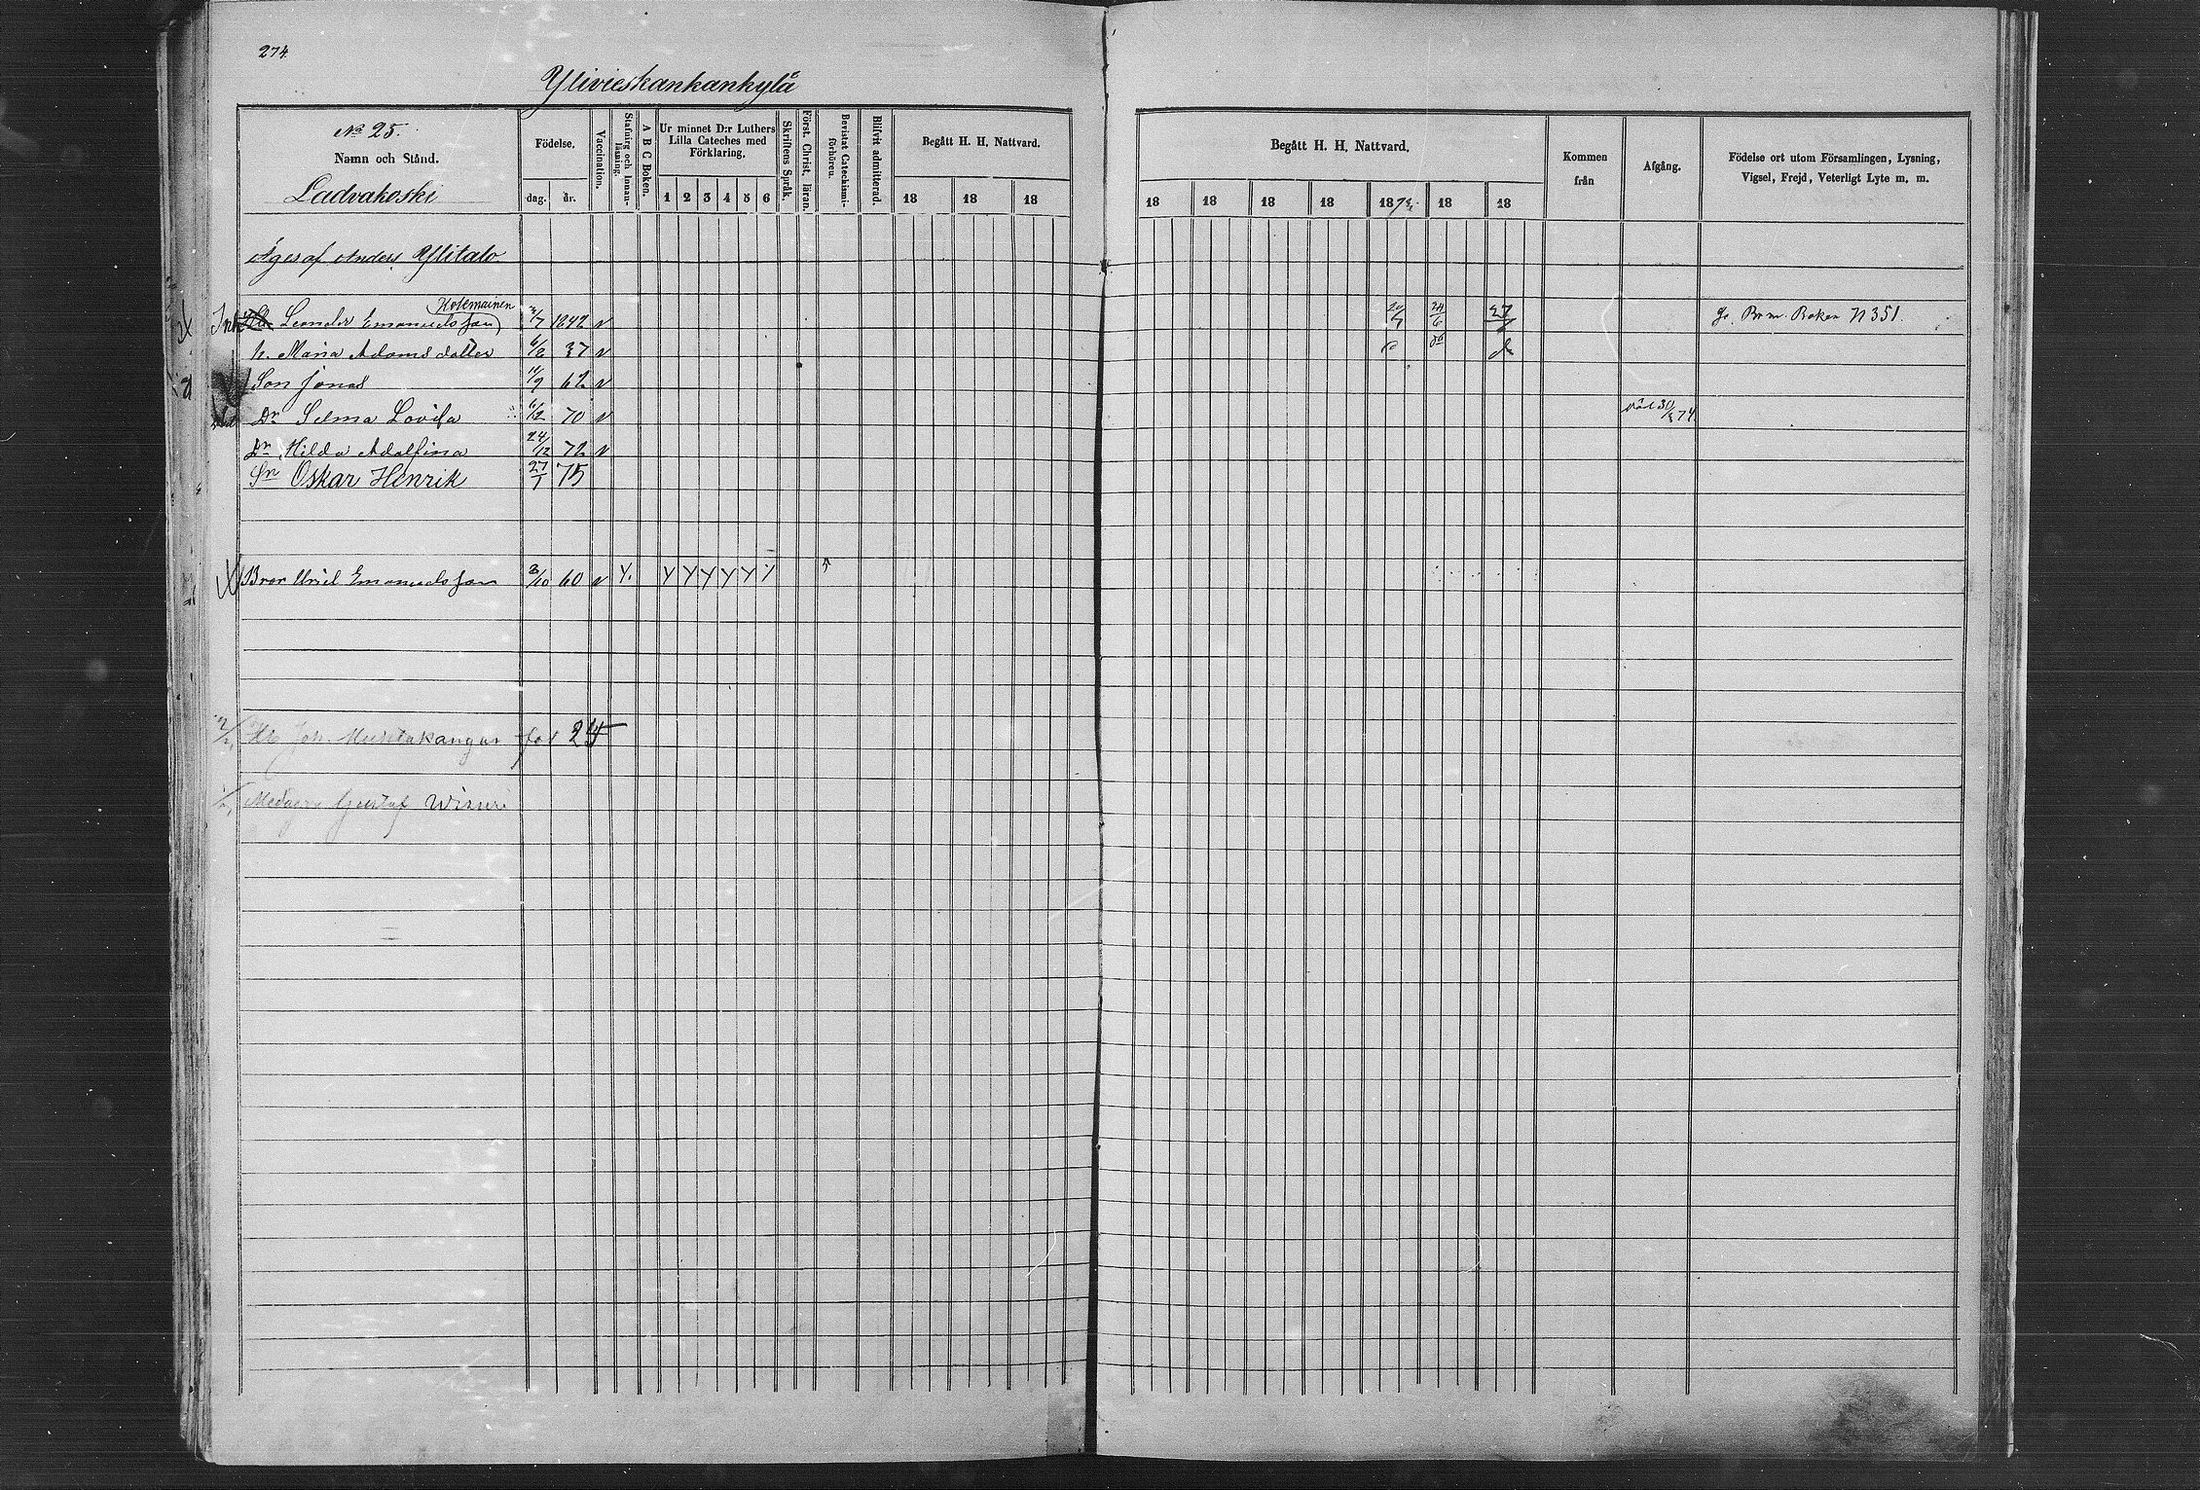 274.
Ylivieskankankylä
No 25.
Namn och Stånd.
Ladvakoski
Födelse.
dag. år.
Vaccination.
Stafning och Innanläsning.
A B C Boken.
Ur minnet D:r Luthers
Lilla Cateches med
Förklaring.
1 2 3 4 5 6
Skriftens Språk.
Först. Christ. läran.
Bevistat Catechismiförhören.
Blifvit admitterad.
Begått H. H. Nattvard.
18 18 18
Begått H. H. Nattvard.
18 18 18 18 1873. 18 18
Kommen
från
Afgång.
Födelse ort utom Församlingen, Lysning,
Vigsel, Frejd, Veterligt Lyte m. m.
Äges af Anders Ylitalo
Kolemainen
Inh Leander Emanuelsson /7 1842 v 20/7 24/6 27/7 Br m. Boken N 351.
h. Maria Adamsdotter 6/2 37 v do do
Son Jonas 11/9 62 v
död Dr Selma Lovisa 6/12 70 v död 30/3 74
Dr Hilda Adolfina 24/12 72 v
Sn Oskar Henrik 27/1 75
Bror Uriel Emanuelsson 3/10 60 v y. y y y y y y
Joh. Mustakangas för 24
Gustaf Wisuri